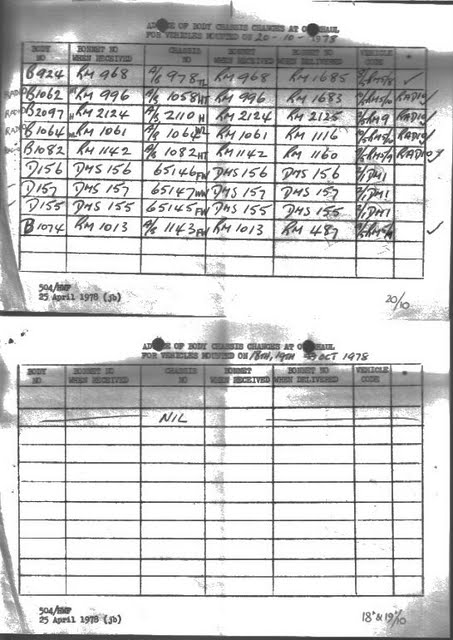 ADVICE OF BODY CHASSIS CHANGES AT OVERHAUL
FOR VEHICLES MOUNTED ON 20-10-1978
BODY NO BONNET NO WHEN RECEIVED CHASSIS NO BONNET WHEN RECEIVED BONNET NO WHEN DELIVERED VEHICLE CODE *
B924 RM 968 A/S 978 TL RM 968 RM 1685 ✓
RADIO B1062 RM 996 A/S 1058 HT RM 996 RM 1683 RADIO ✓
RADIO B2097 RM 2124 A/S 2110 H RM 2124 RM 2125 RADIO ✓
RADIO B1064 RM 1061 A/S 1064 RM 1061 RM 1116 RADIO ✓
B1082 RM 1142 A/S 1082 HT RM 1142 RM 1160 RADIO ✓
D156 DMS 156 65146 FW DMS 156 DMS 156
D157 DMS 157 65147 WW DMS 157 DMS 157
D155 DMS 155 65145 FW DMS 155 DMS 155
B1074 RM 1013 A/S 1143 FW RM 1013 RM 487 ✓
504/HWP
25 April 1978 (jb)
20/10
ADVICE OF BODY CHASSIS CHANGES AT OVERHAUL
FOR VEHICLES MOUNTED ON 18TH, 19TH OCT 1978
BODY NO BONNET NO WHEN RECEIVED CHASSIS NO BONNET WHEN RECEIVED BONNET NO WHEN DELIVERED VEHICLE CODE *
NIL
504/HWP
25 April 1978 (jb)
18 & 19/10